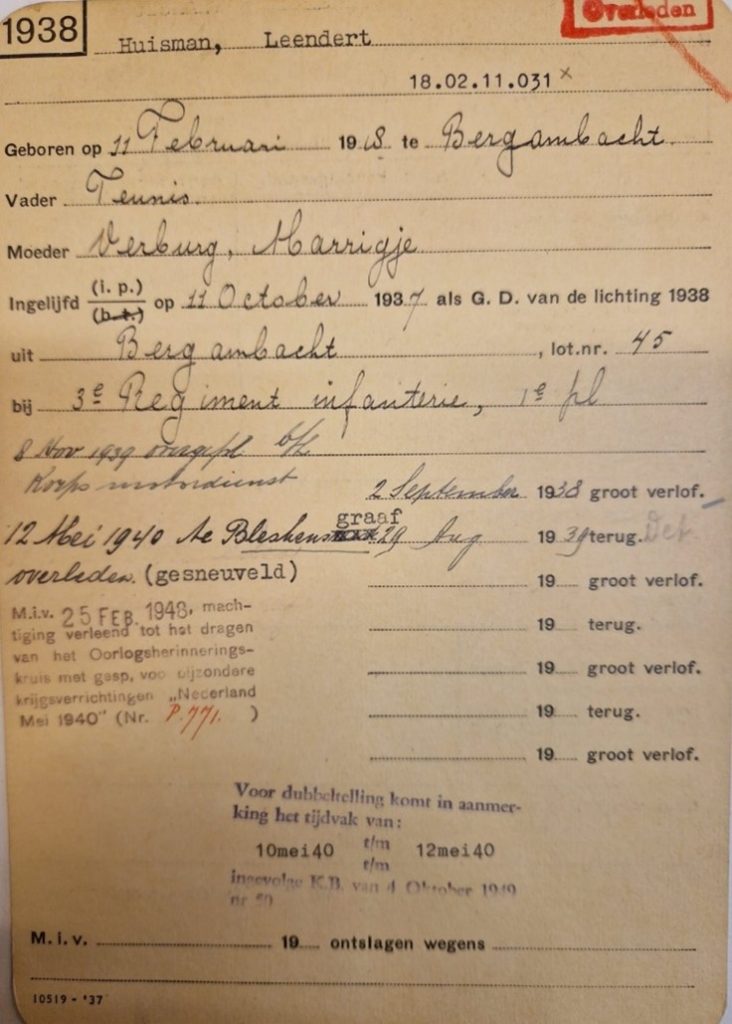 1938
Overleden
Huisman, Leendert
18.02.11.031 x
Geboren op 11 Februari 1918 te Bergambacht.
Vader Teunis.
Moeder Verburg, Marrigje
Ingelijfd (i. p.) (b. t.) op 11 October 1937 als G. D. van de lichting 1938
uit Bergambacht, lot.nr. 45
bij 3e Regiment infanterie, 1e pl
8 Nov 1939 overgepl b/h
Korps motordienst
2 September 1938 groot verlof.
graaf
12 Mei 1940 te Bleskens 29 Aug 1939 terug.
overleden. (gesneuveld)
19 groot verlof.
19 terug.
19 groot verlof.
19 terug.
19 groot verlof.
M.i.v. 25 FEB. 1948, mach-
tiging verleend tot het dragen
van het Oorlogsherinnerings-
kruis met gesp, voor bijzondere
krijgsverrichtingen „Nederland
Mei 1940" (Nr. P.771. )
Voor dubbeltelling komt in aanmer-
king het tijdvak van:
10mei40 t/m 12mei40
t/m
ingevolge K.B. van 4 Oktober 1949
nr 50
M.i.v. 19 ontslagen wegens
10519 - '37